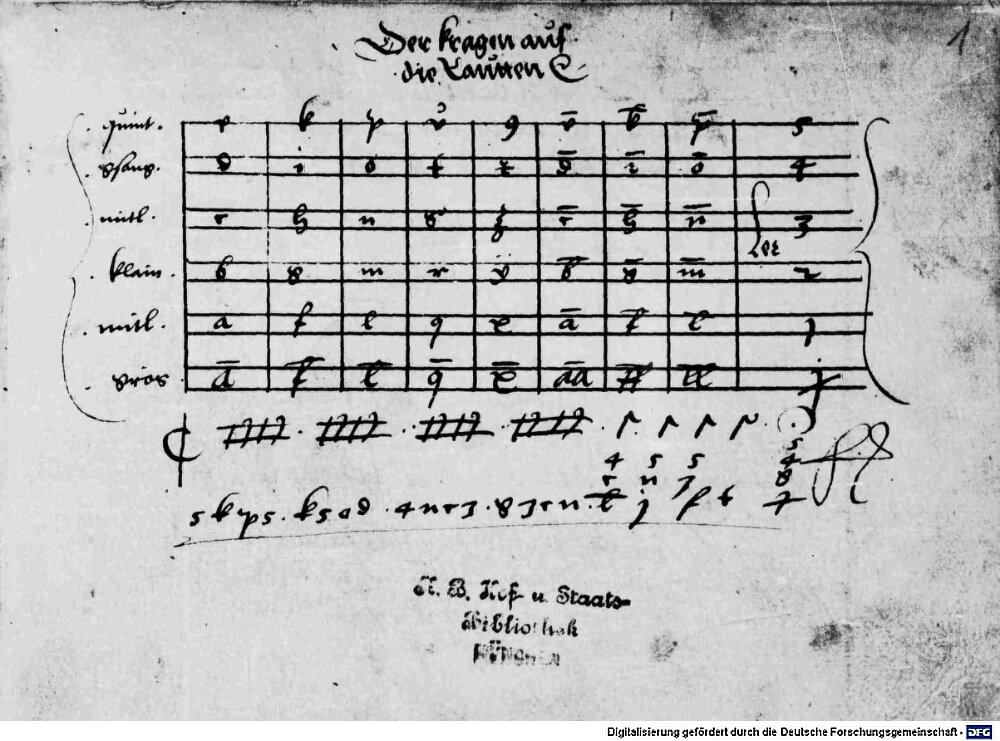 1
Der kragen auf
die Lautten
quint. e k p v 9 ē k̄ p̄ 5
gsang. d i o t z d̄ ī ō 4
mitl. c h n s z c̄ h̄ n̄ 3
Ler
klain. b g m r y b̄ ḡ m̄ 2
mitl. a f l q x ā f̄ l̄ 1
gros ā f̄ l̄ q̄ x̄ aa ff ll 1
4 5 5 5
c n 3 4
5 k p 5 . k 5 o d . 4 n c 3 . g 3 c n .
K. B. Hof- u. Staats-
Bibliothek
MÜNCHEN
Digitalisierung gefördert durch die Deutsche Forschungsgemeinschaft - DFG